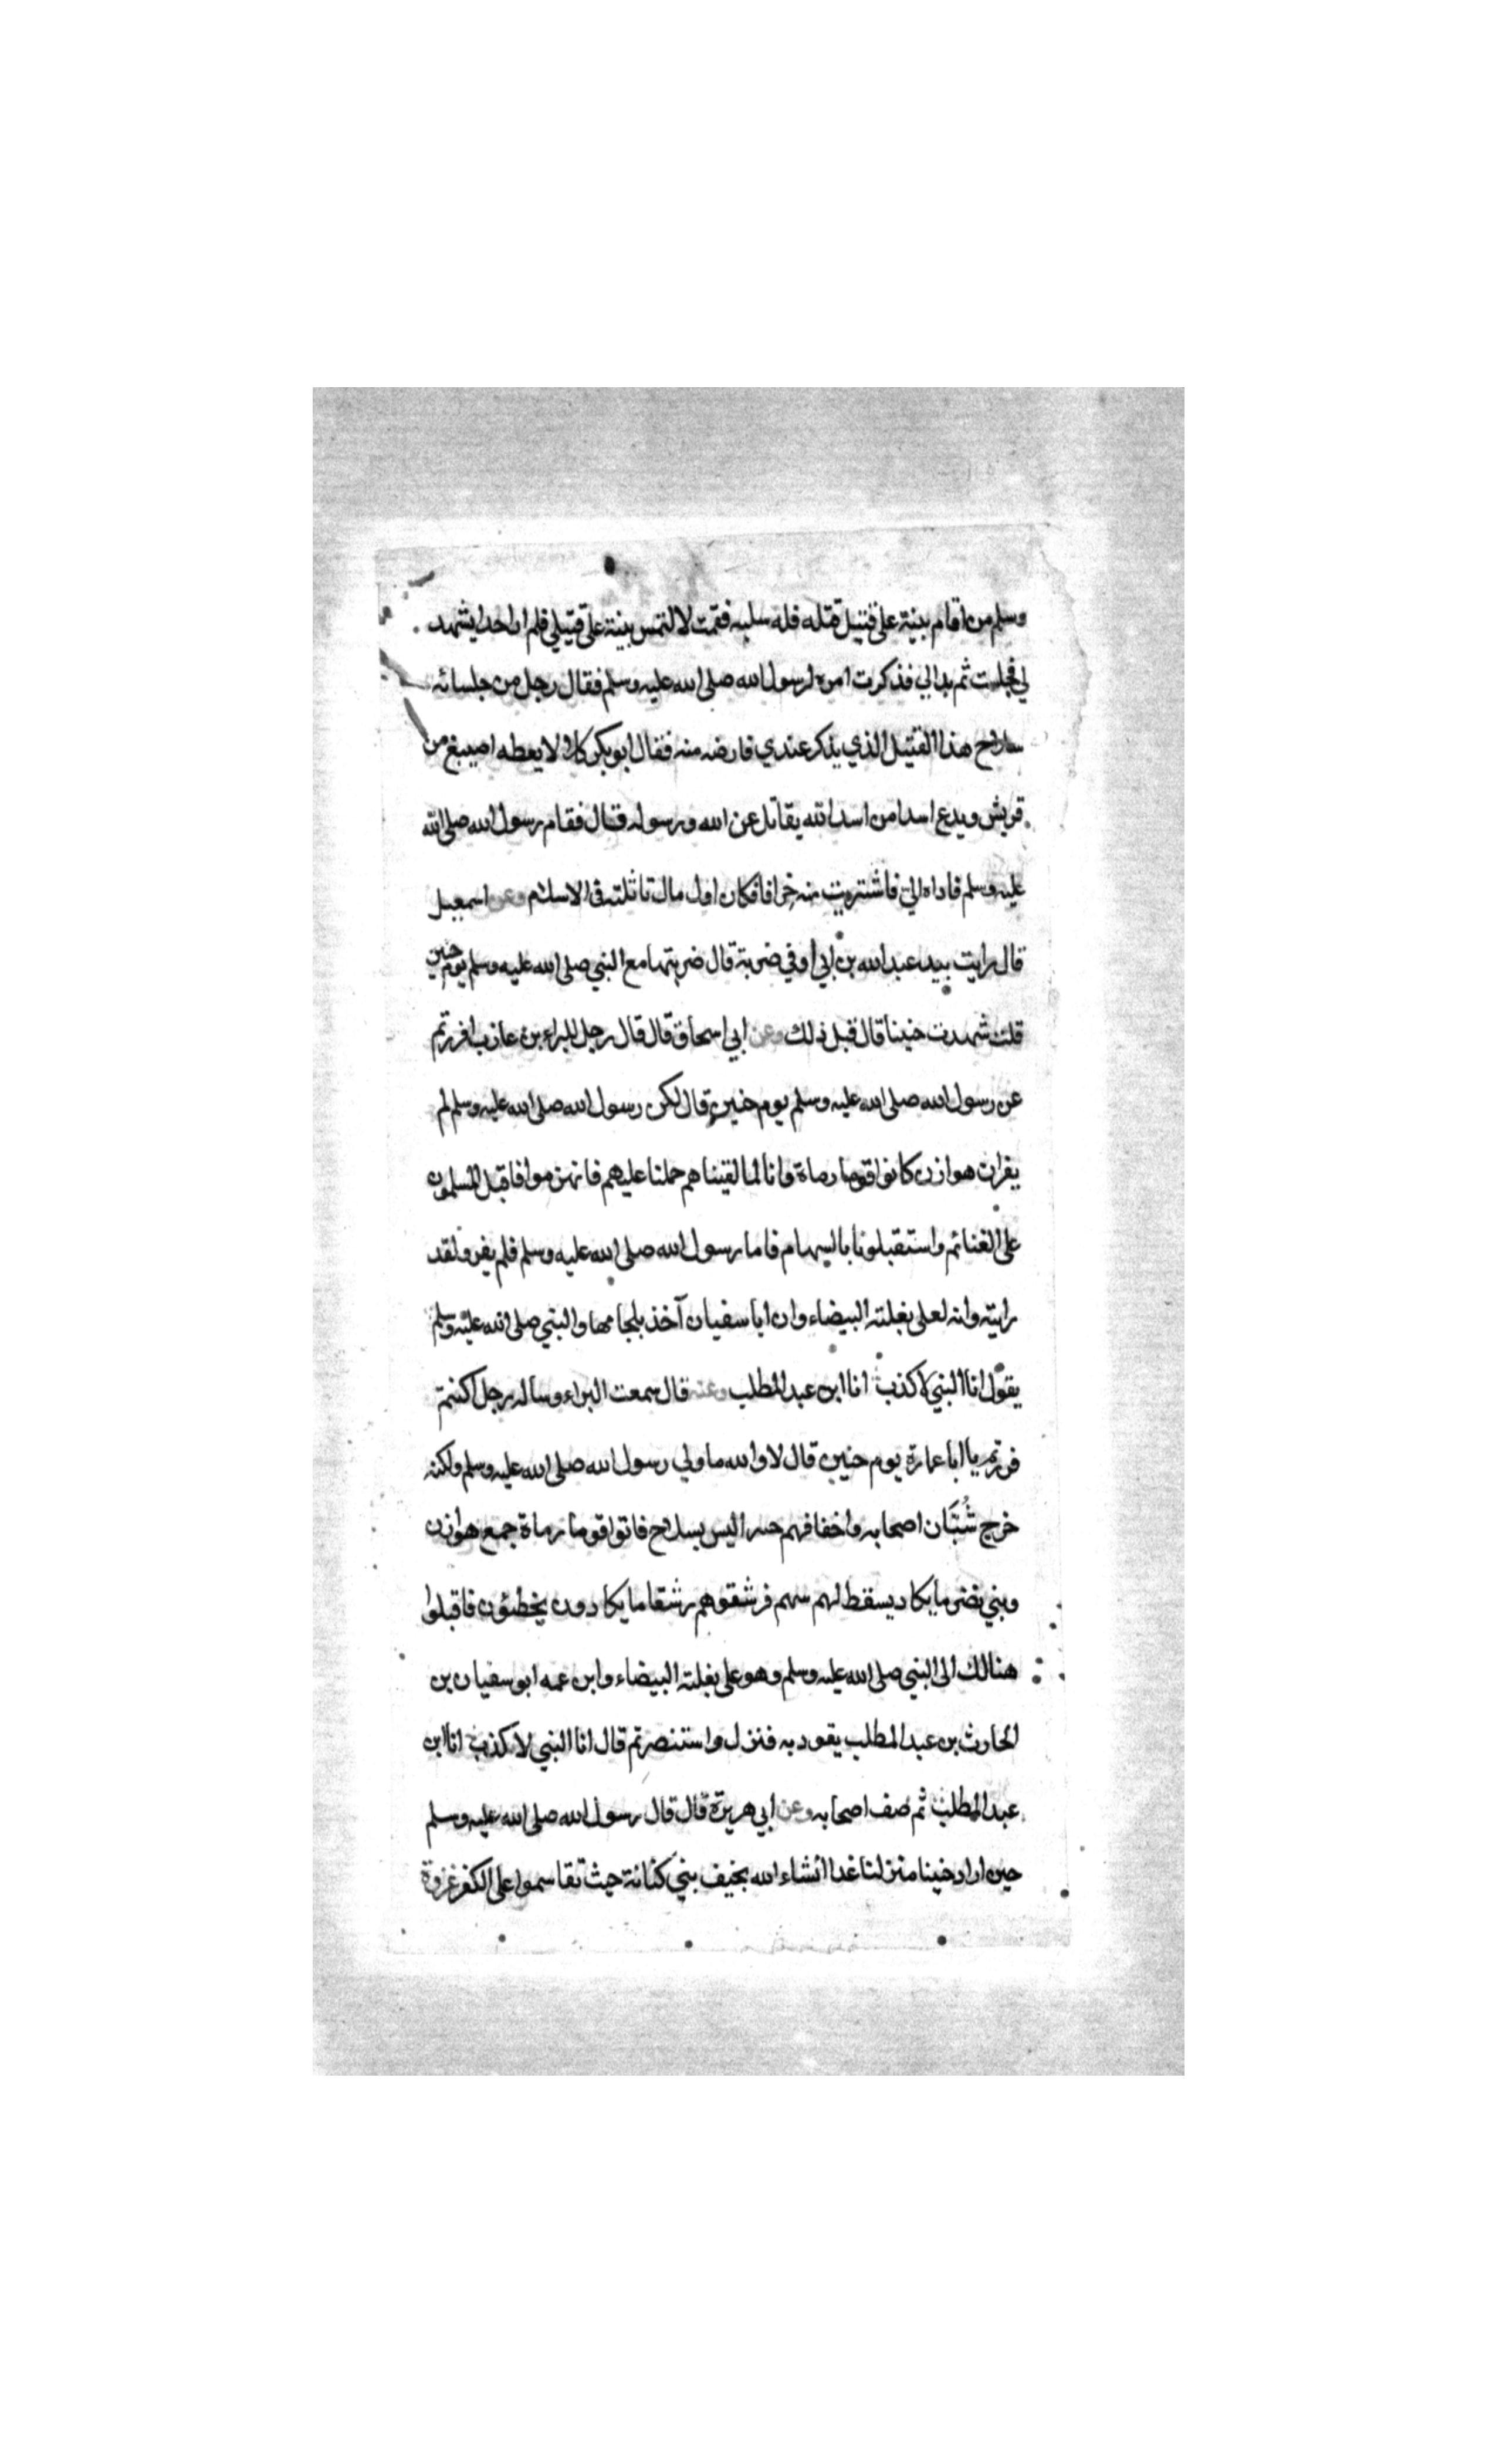 وسلم من اقام بينة على قتيل قتله فله سلبه فقمت لالتمس بينة على قتيلي فلم ار احدا يشهد
لي فجلست ثم بدا لي فذكرت امره لرسول الله صلى الله عليه وسلم فقال رجل من جلسائه
سلاح هذا القتيل الذي يذكر عندي فارضه منه فقال ابو بكر كلا لا يعطه اصيبغ من
قريش ويدع اسدا من اسد الله يقاتل عن الله ورسوله قال فقام رسول الله صلى الله
عليه وسلم فاداه الي فاشتريت منه خرافا فكان اول مال تاثلته في الاسلام وعن اسمعيل
قال رايت بيد عبد الله بن ابي اوفي ضربة قال ضربتها مع النبي صلى الله عليه وسلم يوم حنين
قلت شهدت حنينا قال قبل ذلك وعن ابي اسحاق قال قال رجل للبراء بن عازب افررتم
عن رسول الله صلى الله عليه وسلم يوم حنين قال لكن رسول الله صلى الله عليه وسلم لم
يفر ان هوازن كانوا قوما رماة وانا لما لقيناهم حملنا عليهم فانهزموا فاقبل المسلمون
على الغنائم واستقبلونا بالسهام فاما رسول الله صلى الله عليه وسلم فلم يفر ولقد
رايته وانه لعلى بغلته البيضاء وان ابا سفيان آخذ بلجامها والنبي صلى الله عليه وسلم
يقول انا النبي لا كذب انا ابن عبد المطلب وعنه قال سمعت البراء وساله رجل اكنتم
فررتم يا ابا عمارة يوم حنين قال لا والله ما ولي رسول الله صلى الله عليه وسلم ولكنه
خرج شُبَّان اصحابه واخفافهم حسرا ليس بسلاح فاتوا قوما رماة جمع هوازن
وبني نضر ما يكاد يسقط لهم سهم فرشقوهم رشقا ما يكادون يخطئون فاقبلوا
هنالك الى النبي صلى الله عليه وسلم وهو على بغلته البيضاء وابن عمه ابو سفيان بن
الحارث بن عبد المطلب يقود به فنزل واستنصر ثم قال انا النبي لا كذب انا ابن
عبد المطلب ثم صف اصحابه وعن ابي هريرة قال قال رسول الله صلى الله عليه وسلم
حين اراد حنينا منزلنا غدا انشاء الله بخيف بني كنانة حيث تقاسموا على الكفر غزوة